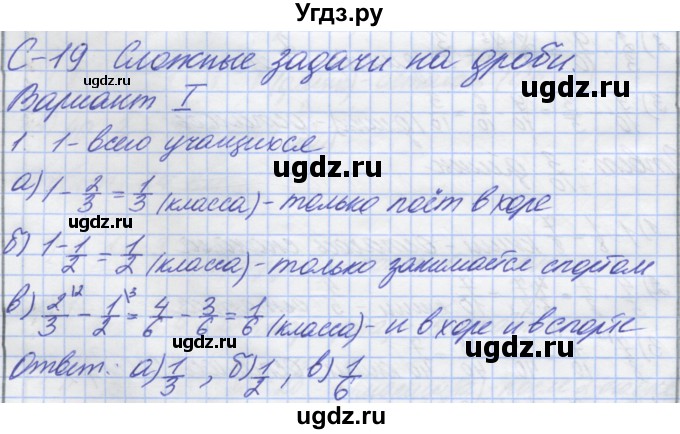 Угдз.ру
С-19 Сложные задачи на дроби
Вариант I
1. 1 - всего учащихся
а) 1 - 2/3 = 1/3 (класса) - только поёт в хоре
б) 1 - 1/2 = 1/2 (класса) - только занимается спортом
в) 2/3 \2 - 1/2 \3 = 4/6 - 3/6 = 1/6 (класса) - и в хоре и в спорте
Ответ: а) 1/3, б) 1/2, в) 1/6
ugdz.ru
ugdz.ru
ugdz.ru
ugdz.ru
ugdz.ru
ugdz.ru
ugdz.ru
ugdz.ru
ugdz.ru
ugdz.ru
ugdz.ru